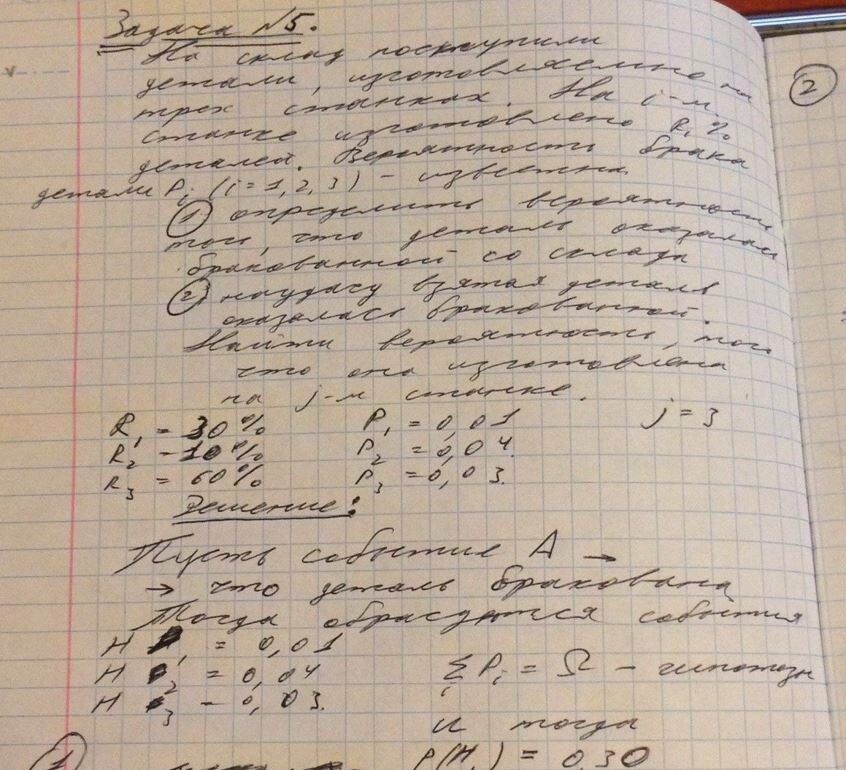 Задача №5.
На склад поскупили
детали, изготовляемно на
трех станках. На i-м
станке изготовлено R₁%
деталей. Вероятность брака
детали Pᵢ (i=1,2,3) - известна.
① определить вероятность
того, что деталь оказалась
бракованной со склада
② наудачу взятая деталь
оказалась бракованной.
Найти вероятность, того
что она изготовлена
на j-м станке.
R₁ = 30% P₁ = 0,01 j = 3
R₂ = 10% P₂ = 0,04.
R₃ = 60% P₃ = 0,03.
Решение:
Пусть событие A →
→ что деталь бракована
Тогда события
H₁ = 0,01
H₂ = 0,04 Σᵢ Pᵢ = Ω - гипотезы
H₃ - 0,03.
и тогда
① P(H₁) = 0,30
②